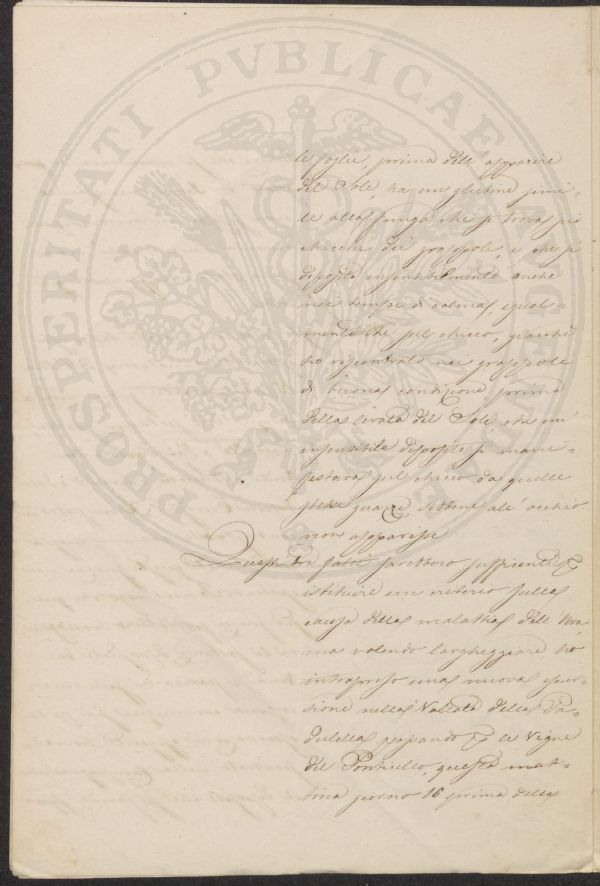 PROSPERITATI PVBLICAE
le foglie, prima dell' apparire
del Sole, ha un glutine simi-
le alla fungo che si trova sui
chicchi dei grappoli, e che si
deposita insensibilmente anche
nei tempi di calma, egual-
mente che sul chicco, giacchè
ho riscontrato nei grappoli
di buona condizione, prima
della levata del Sole, che un'
insensibile deposito si mani-
festava sul chicco da quelle
stesse sebbene all' occhio
non apparisse
Questi tre fatti sarebbero sufficienti
istituire un criterio sulla
causa della malattia dell' Uva,
ma volendo largheggiare ho
intrapreso una nuova escur-
sione nella Vallata della Pa-
dulella passando le Vigne
del Ponticello, questa mat-
tina giorno 16 prima della